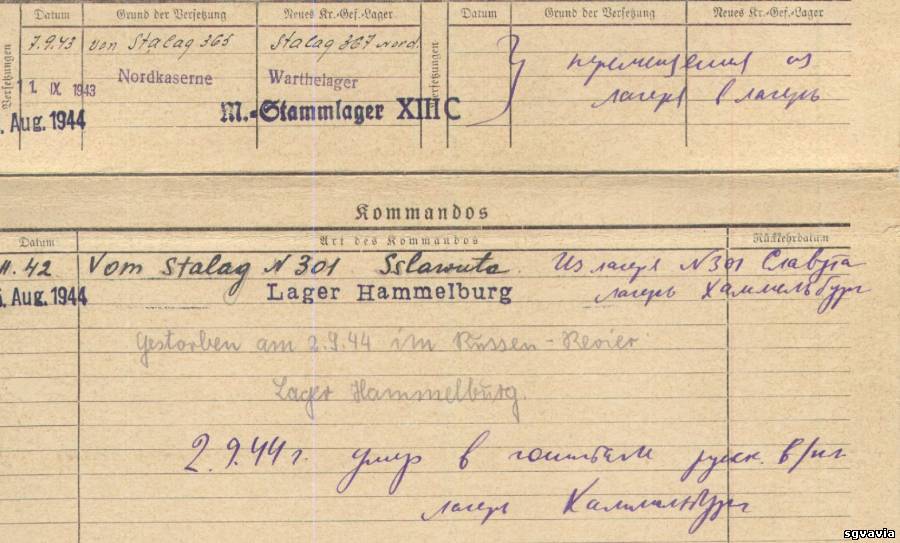 Datum Grund der Versetzung Neues Kr.-Gef.-Lager Datum Grund der Versetzung Neues Kr.-Gef.-Lager
Versetzungen
7.9.43 von Stalag 365 Stalag 367 Nord.
Nordkaserne Warthelager
11. IX 1943
. Aug. 1944 M.-Stammlager XIII C
Versetzungen
перемещения из
лагеря в лагерь
Kommandos
Datum Art des Kommandos Rückkehrdatum
11.42 Vom Stalag N 301 Sslawuta. Из лагеря N 301 Славута
. Aug. 1944 Lager Hammelburg лагерь Хаммельбург
Gestorben am 2.9.44 im Russen-Revier
Lager Hammelburg.
2.9.44 г. умер в госпитале русск. в/пл.
лагерь Хаммельбург
sgvavia